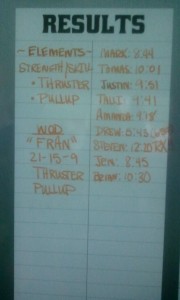 RESULTS
- ELEMENTS -
STRENGTH/SKILL
• THRUSTER
• PULLUP
WOD
"FRAN"
21-15-9
THRUSTER
PULLUP
MARK: 8:44
THOMAS: 10:01
JUSTIN: 9:51
TALI: 9:41
AMANDA: 9:18
DREW: 5:45
12:20 RX
JEN: 8:45
BRIAN: 10:30